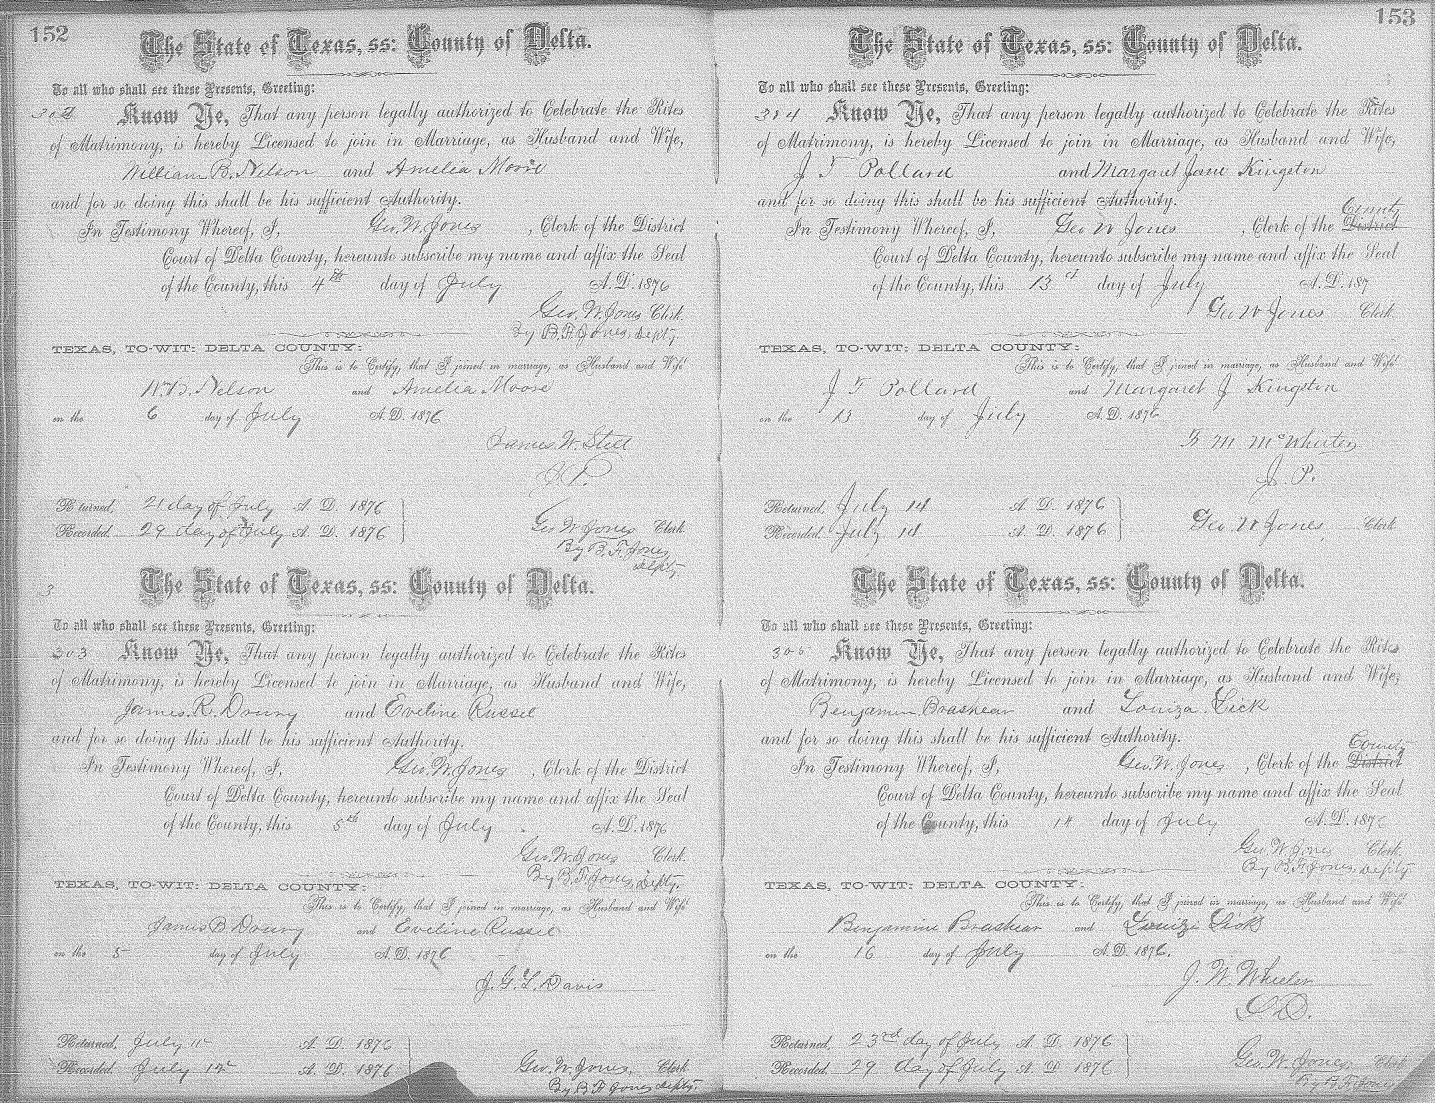 152
The State of Texas, ss: County of Delta.
To all who shall see these Presents, Greeting:
302 Know Ye, That any person legally authorized to Celebrate the Rites
of Matrimony, is hereby Licensed to join in Marriage, as Husband and Wife,
William B. Nelson and Amelia Moore
and for so doing this shall be his sufficient Authority.
In Testimony Whereof, I, Geo. W. Jones, Clerk of the District
Court of Delta County, hereunto subscribe my name and affix the Seal
of the County, this 4th day of July A.D. 1876
Geo. W. Jones Clerk.
By B. F. Jones, Depty.
TEXAS, TO-WIT: DELTA COUNTY:
This is to Certify, that I joined in marriage, as Husband and Wife
W. B. Nelson and Amelia Moore
on the 6 day of July A.D. 1876
James W. Still
J. P.
Returned, 21 day of July A. D. 1876
Recorded. 29 day of July A. D. 1876
Geo W Jones Clerk
By B. F. Jones
Depty.
3
The State of Texas, ss: County of Delta.
To all who shall see these Presents, Greeting:
303 Know Ye, That any person legally authorized to Celebrate the Rites
of Matrimony, is hereby Licensed to join in Marriage, as Husband and Wife,
James. R. Drury and Eveline Russel
and for so doing this shall be his sufficient Authority.
In Testimony Whereof, I, Geo. W. Jones, Clerk of the District
Court of Delta County, hereunto subscribe my name and affix the Seal
of the County, this 5th day of July. A.D. 1876
Geo. W. Jones Clerk.
By B. F. Jones, Depty.
TEXAS, TO-WIT: DELTA COUNTY:
This is to Certify, that I joined in marriage, as Husband and Wife
James B Drury and Eveline Russel
on the 5 day of July A.D. 1876
J. G. L. Davis
Returned, July A. D. 1876
Recorded. July A. D. 1876
Geo. W. Jones, Clerk
By B F Jones depty.
153
The State of Texas, ss: County of Delta.
To all who shall see these Presents, Greeting:
304 Know Ye, That any person legally authorized to Celebrate the Rites
of Matrimony, is hereby Licensed to join in Marriage, as Husband and Wife,
J T Pollard and Margaret Jane Kingston
and for so doing this shall be his sufficient Authority.
County
In Testimony Whereof, I, Geo W Jones, Clerk of the District
Court of Delta County, hereunto subscribe my name and affix the Seal
of the County, this 13 day of July A.D. 187
Geo W Jones Clerk
TEXAS, TO-WIT: DELTA COUNTY:
This is to Certify, that I joined in marriage, as Husband and Wife
J T Pollard and Margaret J Kingston
on the 13 day of July A.D. 1876
F. M. McWhirter
J. P.
Returned, July 14 A. D. 1876
Recorded. July 14 A. D. 1876
Geo W Jones, Clerk
The State of Texas, ss: County of Delta.
To all who shall see these Presents, Greeting:
305 Know Ye, That any person legally authorized to Celebrate the Rites
of Matrimony, is hereby Licensed to join in Marriage, as Husband and Wife,
Benjamin Brashear and Louiza Lick
and for so doing this shall be his sufficient Authority.
County
In Testimony Whereof, I, Geo. W. Jones, Clerk of the District
Court of Delta County, hereunto subscribe my name and affix the Seal
of the County, this 14 day of July A.D. 187
Geo. W. Jones Clerk,
By B. F. Jones, Depty
TEXAS, TO-WIT: DELTA COUNTY:
This is to Certify, that I joined in marriage, as Husband and Wife
Benjamine Brashear and Louiza Lick
on the 16 day of July A.D. 1876.
J. W. Wheeler
Returned, 23rd day of July A. D. 1876
Recorded. 29 day of July A. D. 1876
Geo. W. Jones, Clerk